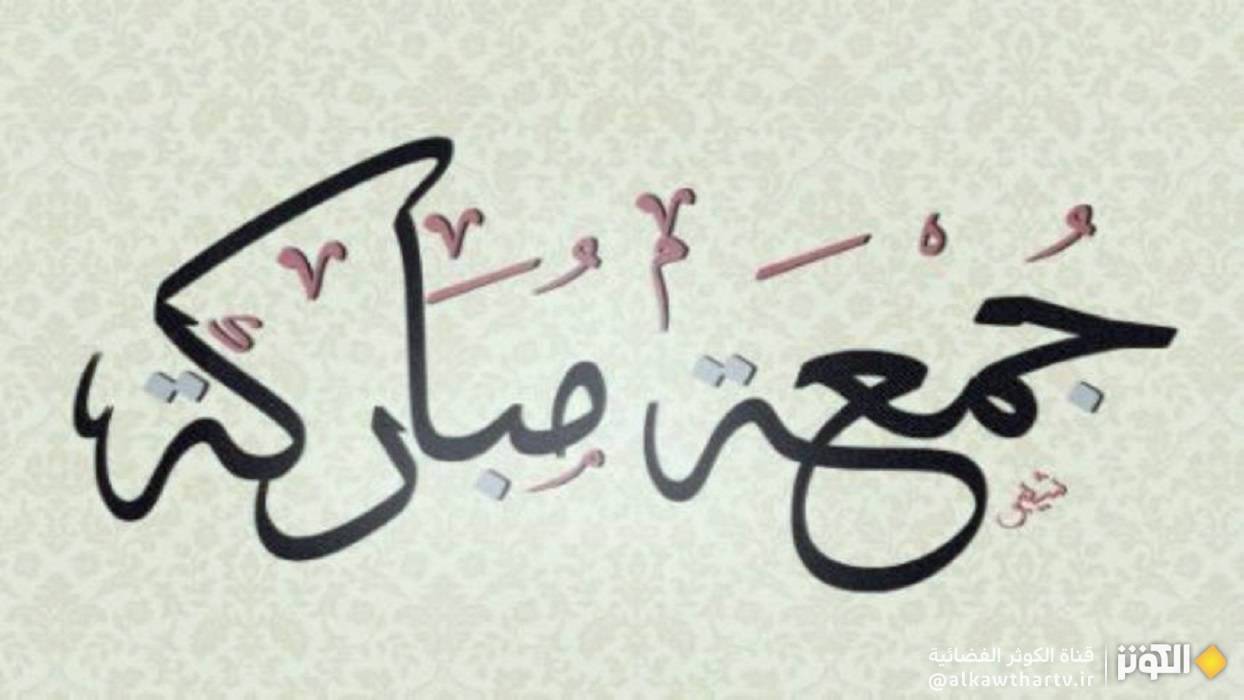 جُمْعَة مُبَارَكة
الكوثر
قناة الكوثر الفضائية
@alkawthartv.ir